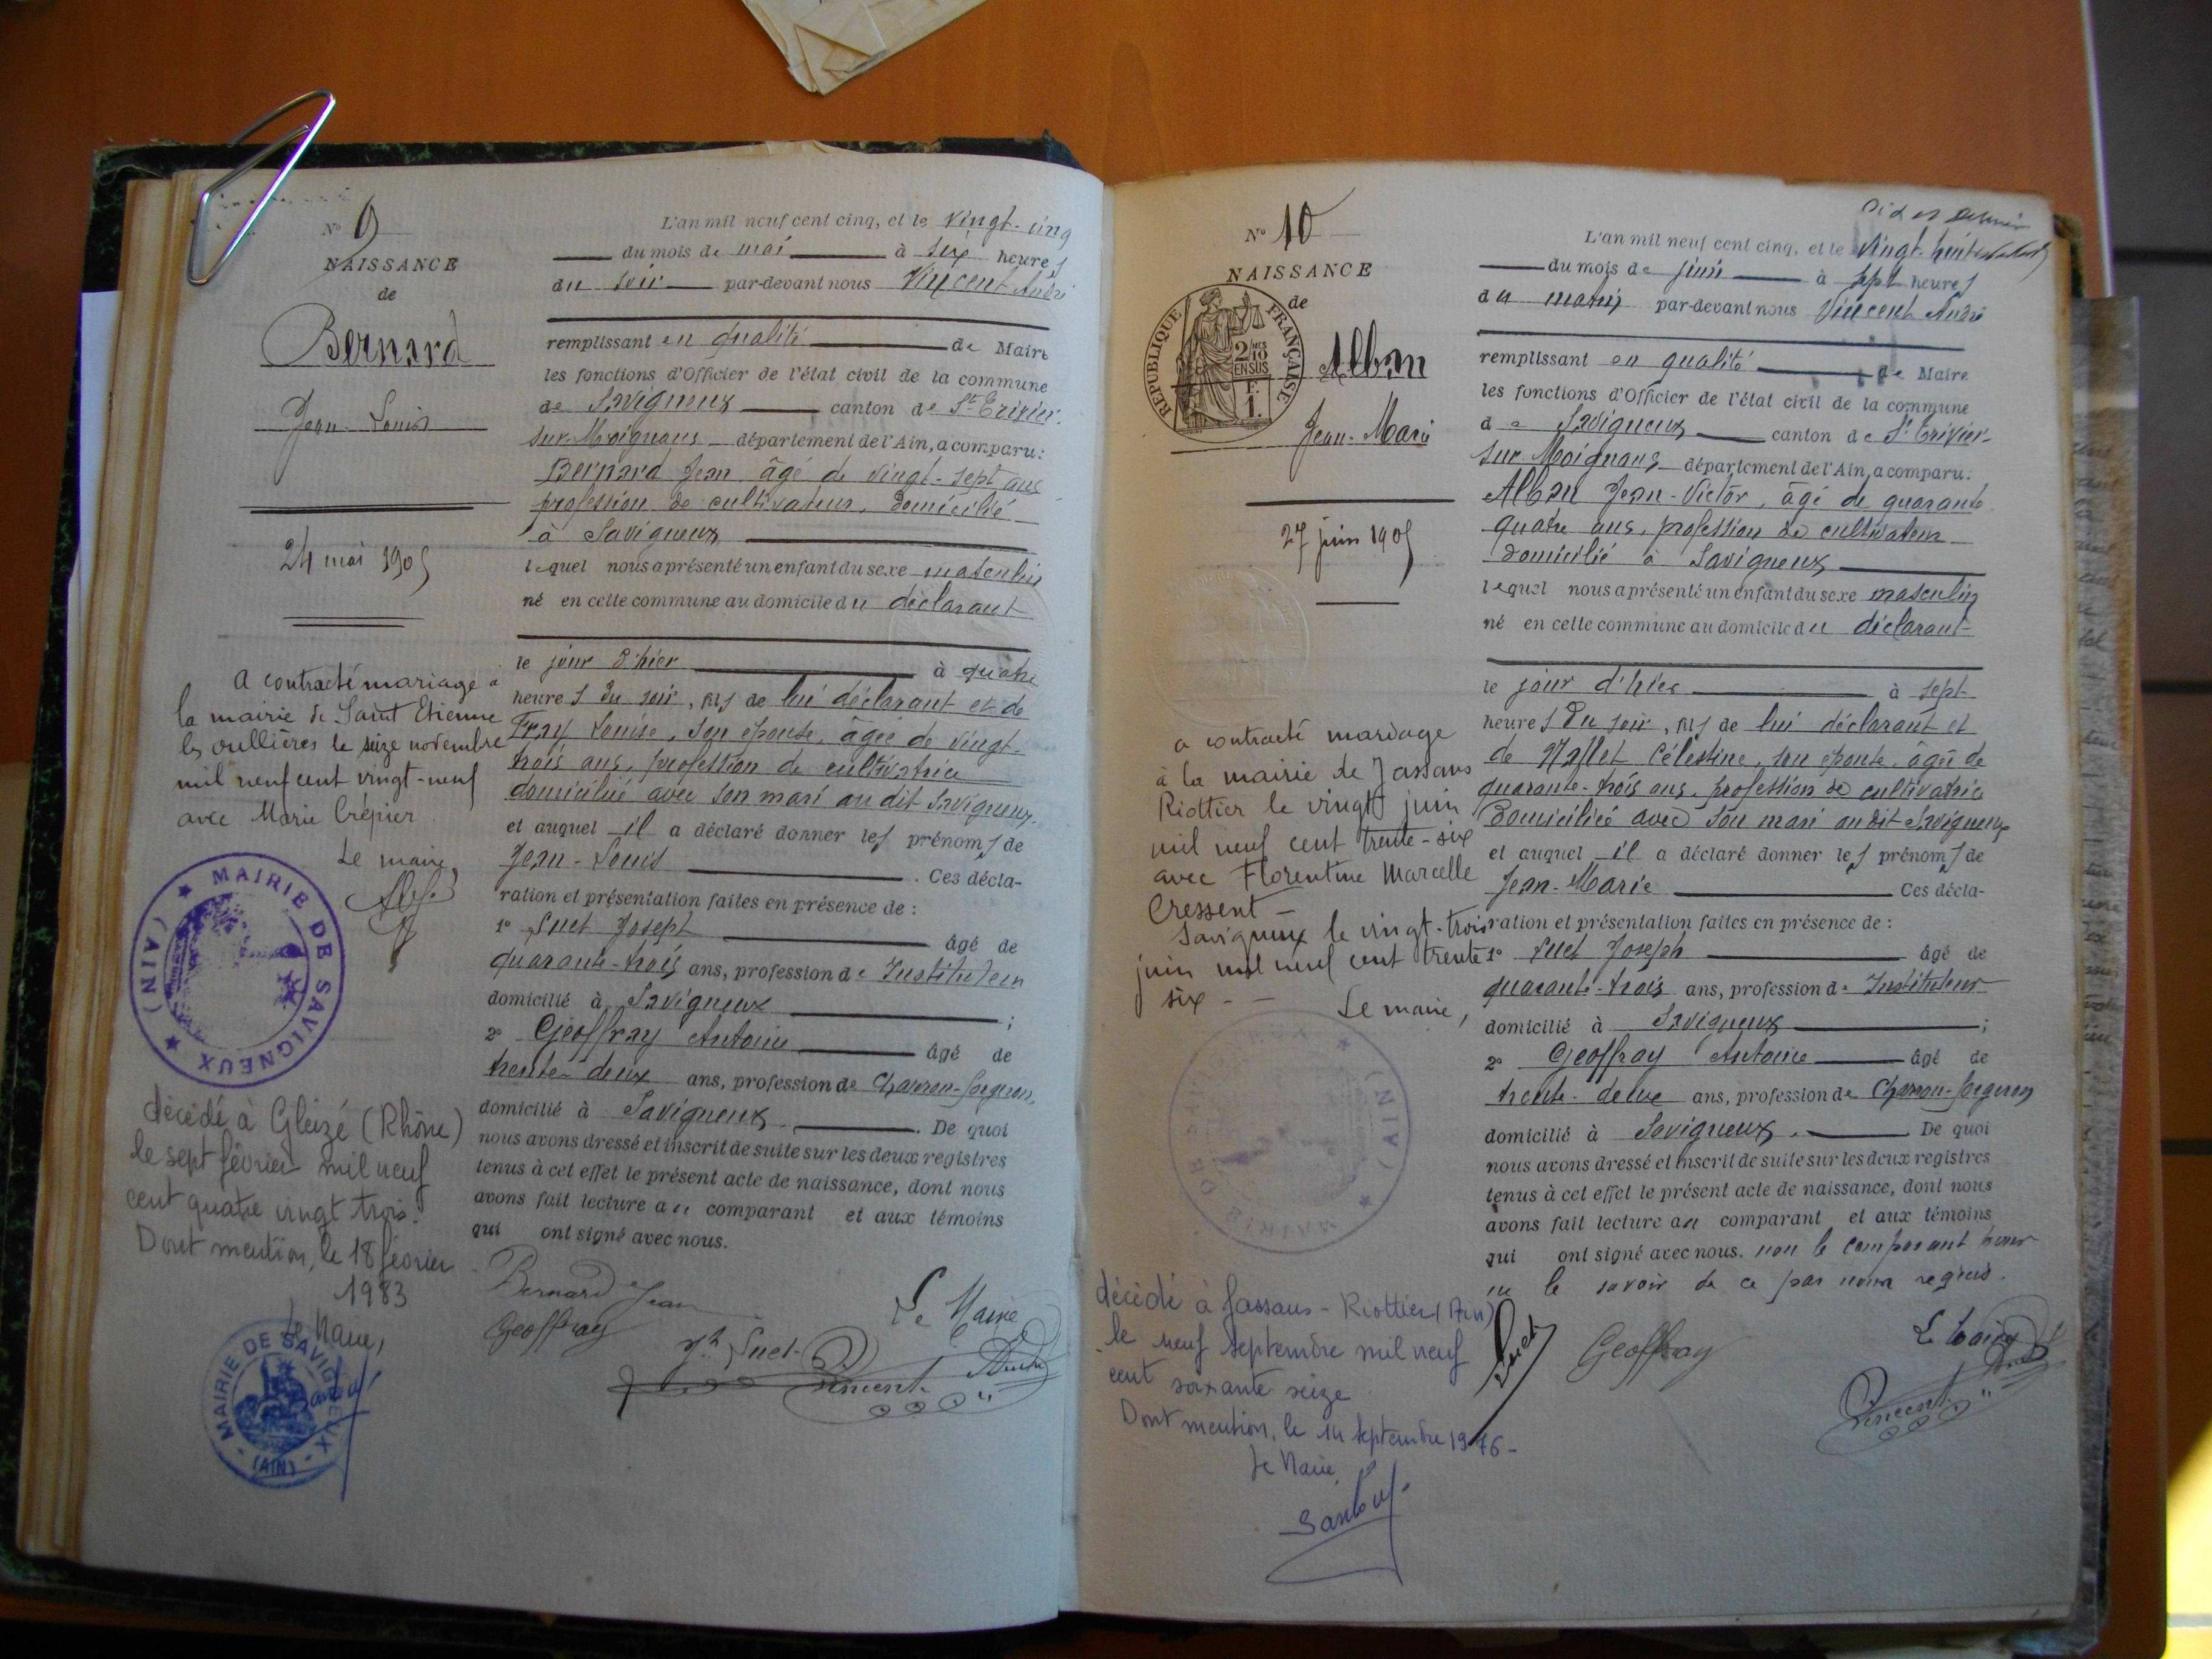 N° 9
NAISSANCE
de
Bernard
Jean-Louis
24 mai 1905
A contracté mariage à
la mairie de Saint Etienne
les oullières le seize novembre
mil neuf cent vingt-neuf
avec Marie Crépier
Le maire,
MAIRIE DE SAVIGNEUX (AIN)
décédé à Gleizé (Rhône)
le sept février mil neuf
cent quatre vingt trois.
Dont mention, le 18 février
1983
Le Maire,
MAIRIE DE SAVIGNEUX (AIN)
L'an mil neuf cent cinq, et le vingt-cinq
du mois de mai à six heures
du soir par-devant nous Vincent André
remplissant en qualité de Maire
les fonctions d'Officier de l'état civil de la commune
de Savigneux canton de St Trivier-
sur-Moignans département de l'Ain, a comparu:
Bernard Jean âgé de vingt-sept ans
profession de cultivateur, domicilié
à Savigneux
lequel nous a présenté un enfant du sexe masculin
né en cette commune au domicile du déclarant
le jour d'hier à quatre
heures du soir, fils de lui déclarant et de
Fray Louise, son épouse, âgée de vingt-
trois ans, profession de cultivatrice
domiciliée avec son mari au dit Savigneux.
et auquel il a déclaré donner les prénoms de
Jean-Louis. Ces décla-
ration et présentation faites en présence de :
1° Suet Joseph âgé de
quarante-trois ans, profession de Instituteur
domicilié à Savigneux ;
2° Geoffray Antoine âgé de
trente-deux ans, profession de Charron-forgeron,
domicilié à Savigneux. De quoi
nous avons dressé et inscrit de suite sur les deux registres
tenus à cet effet le présent acte de naissance, dont nous
avons fait lecture au comparant et aux témoins
qui ont signé avec nous.
Bernard Jean
Le Maire
Geoffray
Jh Suet
Vincent André
N° 10
NAISSANCE
de
RÉPUBLIQUE FRANÇAISE
2/10 EN SUS
F. 1.
Alban
Jean-Marie
27 juin 1905
a contracté mariage
à la mairie de Jassans
Riottier le vingt juin
mil neuf cent trente-six
avec Florentine Marcelle
Cressent -
Savigneux le vingt-trois
juin mil neuf cent trente
six - -
Le maire,
MAIRIE DE (AIN)
décédé à Jassans-Riottier (Ain)
le neuf septembre mil neuf
cent soixante seize
Dont mention, le 14 septembre 1976-
Le Maire,
L'an mil neuf cent cinq, et le vingt-huit
du mois de juin à sept heures
du matin par-devant nous Vincent André
remplissant en qualité de Maire
les fonctions d'Officier de l'état civil de la commune
de Savigneux canton de St Trivier-
sur-Moignans département de l'Ain, a comparu:
Alban Jean-Victor, âgé de quarante
quatre ans, profession de cultivateur
domicilié à Savigneux
lequel nous a présenté un enfant du sexe masculin
né en cette commune au domicile du déclarant
le jour d'hier à sept
heures du soir, fils de lui déclarant et
de Mallet Célestine, son épouse, âgée de
quarante-trois ans, profession de cultivatrice
domiciliée avec son mari au dit Savigneux
et auquel il a déclaré donner les prénoms de
Jean-Marie Ces décla-
ration et présentation faites en présence de :
1° Suet Joseph âgé de
quarante-trois ans, profession de Instituteur
domicilié à Savigneux ;
2° Geoffray Antoine âgé de
trente-deux ans, profession de Charron-forgeron
domicilié à Savigneux. De quoi
nous avons dressé et inscrit de suite sur les deux registres
tenus à cet effet le présent acte de naissance, dont nous
avons fait lecture au comparant et aux témoins
qui ont signé avec nous. non le comparant pour
ne le savoir de ce par nous requis.
Suet
Geoffray
Le Maire
Vincent André